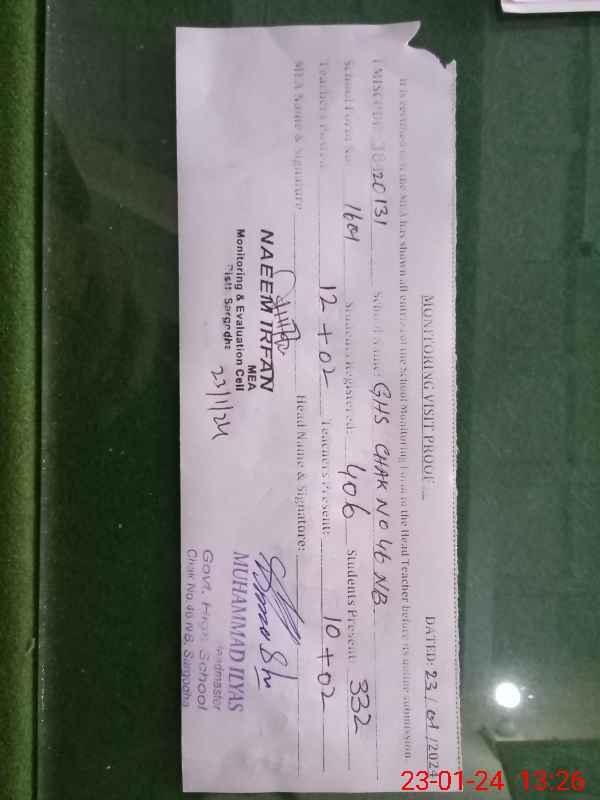 MONITORING VISIT PROOF
DATED: 23/01/202
It is certified that the MEA has shown all entries of the School Monitoring Form to the Head Teacher before its online submission.
EMISCODE: 38420131 School Name: GHS CHAK NO 46 NB
School Form No. 1601 Students Registered: 406 Students Present: 332
Teachers Posted: 12+02 Teachers Present: 10+02
MEA Name & Signature Head Name & Signature:
NAEEM IRFAN
MEA
Monitoring & Evaluation Cell
Distt: Sargodha
23/1/24
MUHAMMAD ILYAS
Headmaster
Govt. High School
Chak No. 46 NB, Sargodha
23-01-24 13:26